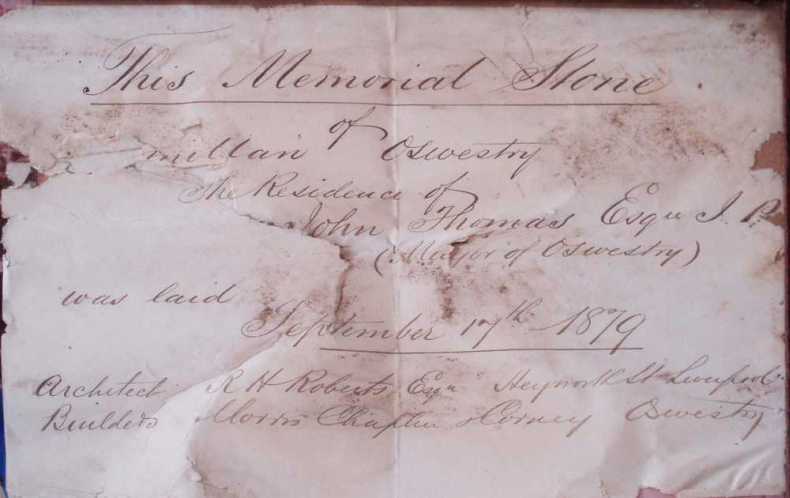 This Memorial Stone
of
Oswestry
The Residence of
John Thomas Esqre J. P.
(Mayor of Oswestry)
was laid
September 17th 1879
Architect R H Roberts Esqre St Liverpool
Builders Morris Chaplin & Oswestry